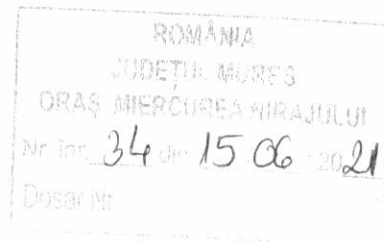 ROMÂNIA
JUDEȚUL MUREȘ
ORAȘ MIERCUREA NIRAJULUI
Nr. înr. 34 din 15 06 2021
Dosar Nr